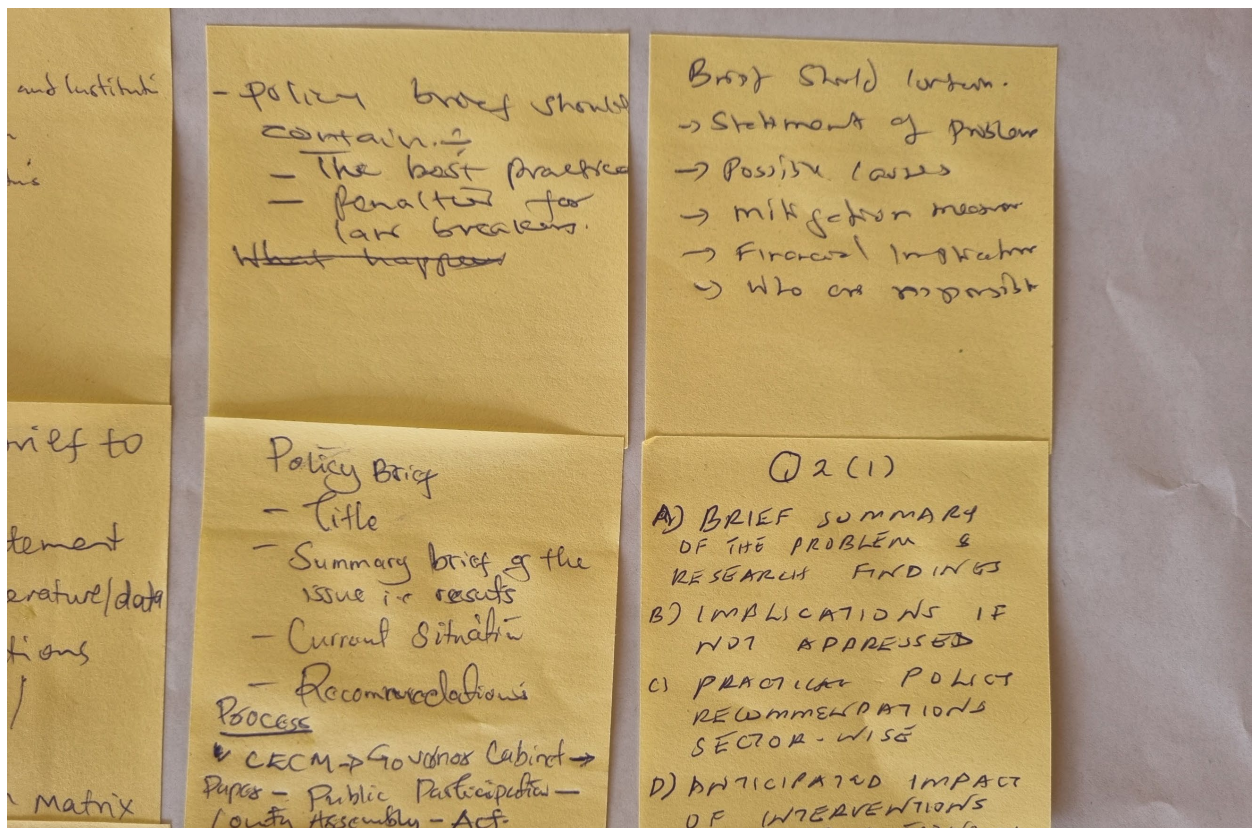 and Instituti
- Policy brief should
contain:-
- The best practice
- Penalties for
law breakers.
What happens
Brief Should Contain.
→ Statement of Problem
→ Possible Causes
→ Mitigation measures
→ Financial Implication
→ Who are responsible
rief to
tement
erature/data
tions
n Matrix
Policy Brief
- Title
- Summary brief of the
issue i.e results
- Current Situation
- Recommendations
Process
CECM → Governor Cabinet →
Paper - Public Participation -
County Assembly - Act.
Q 2 (1)
A) BRIEF SUMMARY
OF THE PROBLEM &
RESEARCH FINDINGS
B) IMPLICATIONS IF
NOT ADDRESSED
C) PRACTICAL POLICY
RECOMMENDATIONS
SECTOR-WISE
D) ANTICIPATED IMPACT
OF INTERVENTIONS